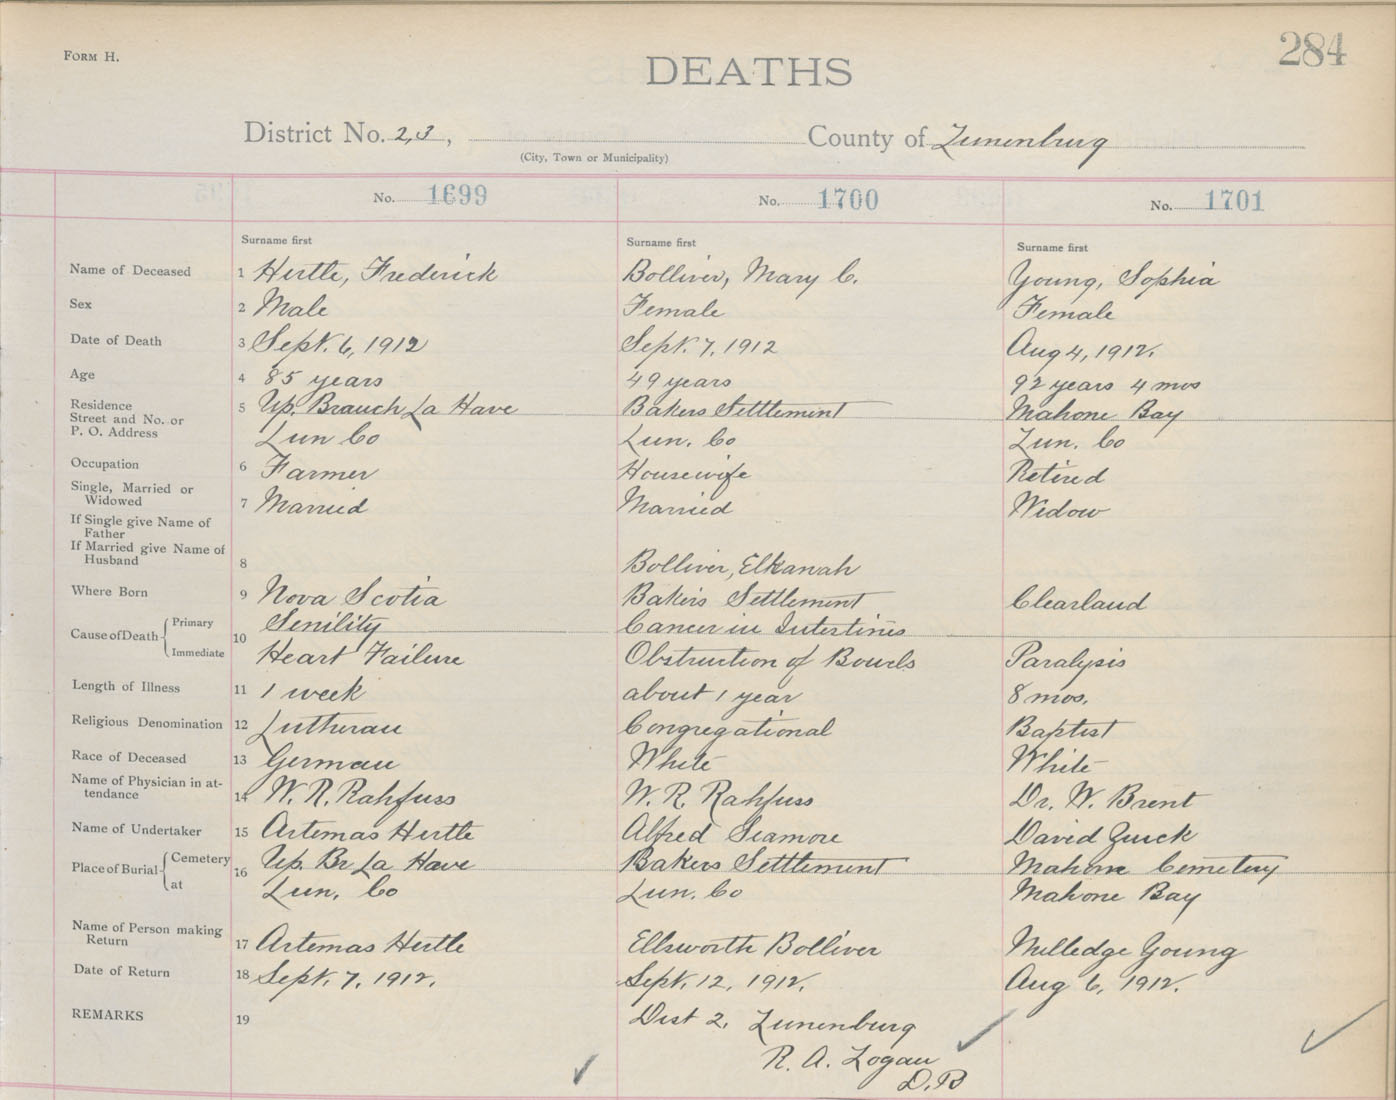 FORM H.
284
DEATHS
District No. 2,3, County of Lunenburg
(City, Town or Municipality)
No. 1699 No. 1700 No. 1701
Surname first Surname first Surname first
Name of Deceased 1 Hertle, Frederick Bolliver, Mary C. Young, Sophia
Sex 2 Male Female Female
Date of Death 3 Sept. 6, 1912 Sept. 7, 1912 Aug 4, 1912.
Age 4 85 years 49 years 92 years 4 mos
Residence 5 Up. Branch La Have Bakers Settlement Mahone Bay
Street and No. or
P. O. Address Lun Co Lun. Co Lun. Co
Occupation 6 Farmer Housewife Retired
Single, Married or
Widowed 7 Married Married Widow
If Single give Name of
Father
If Married give Name of
Husband 8 Bolliver, Elkanah
Where Born 9 Nova Scotia Bakers Settlement Clearland
Cause of Death Primary 10 Senility Cancer in Intestines
Immediate Heart Failure Obstruction of Bowels Paralysis
Length of Illness 11 1 week about 1 year 8 mos.
Religious Denomination 12 Lutheran Congregational Baptist
Race of Deceased 13 German White White
Name of Physician in at-
tendance 14 W. R. Rahfuss W. R. Rahfuss Dr. W. Brent
Name of Undertaker 15 Artemas Hertle Alfred Seamore David Zwick
Place of Burial Cemetery 16 Up. Br La Have Bakers Settlement Mahone Cemetery
at Lun. Co Lun. Co Mahone Bay
Name of Person making
Return 17 Artemas Hertle Ellsworth Bolliver Milledge Young
Date of Return 18 Sept. 7, 1912. Sept. 12, 1912. Aug 6, 1912.
REMARKS 19 Dist 2, Lunenburg
R. A. Logan
D. R